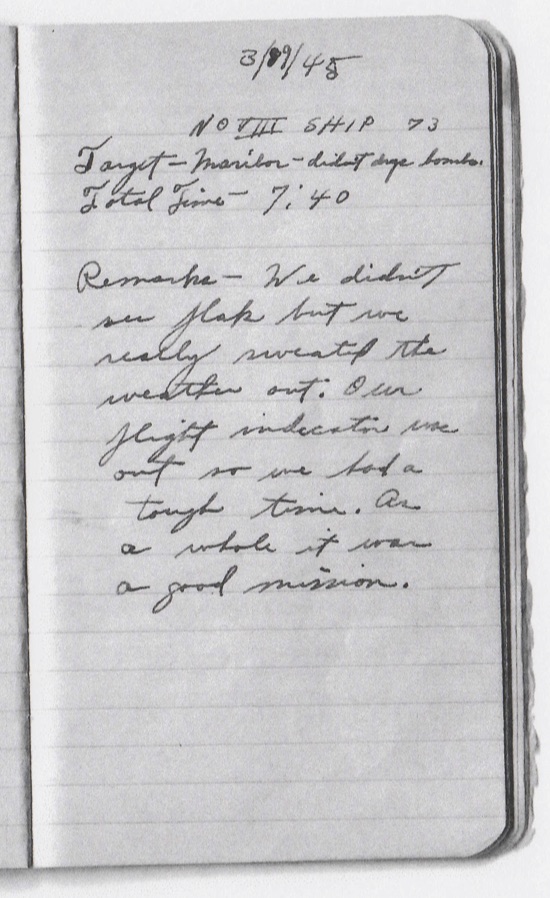 3/ /45
NO VIII SHIP 73
Target - Maribor - didn't drop bombs.
Total Time - 7:40
Remarks - We didn't
see flak but we
really sweated the
weather out. Our
flight indicator was
out so we had a
tough time. As
a whole it was
a good mission.